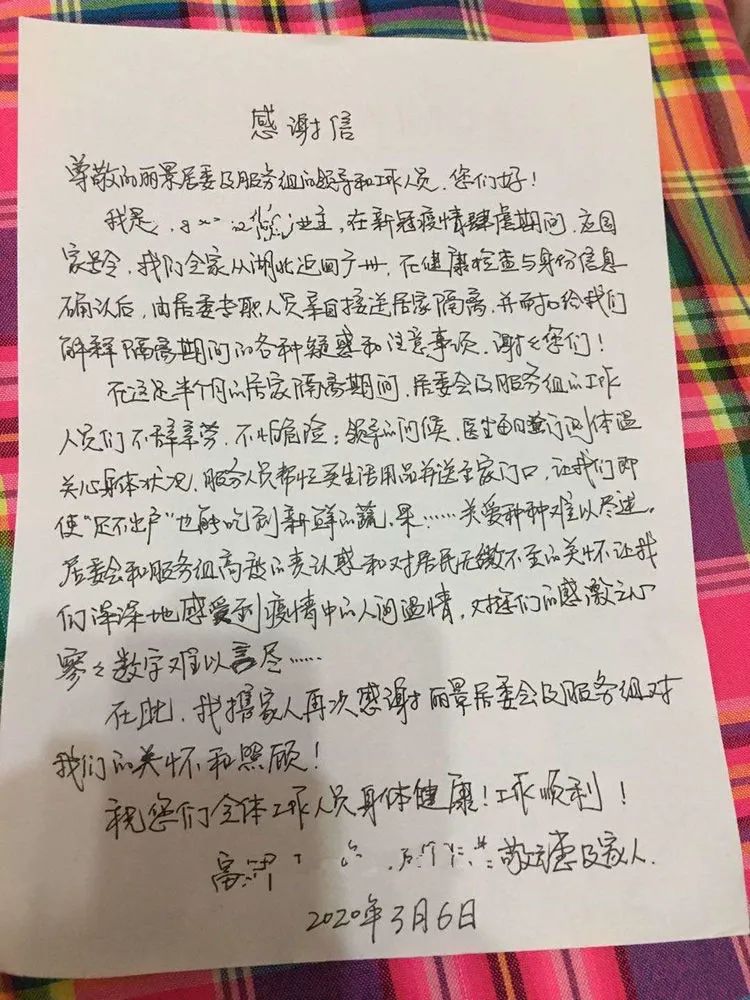 感谢信
尊敬的丽景居委及服务组的领导和工作人员，您们好！
我是 业主，在新冠疫情肆虐期间，应国
家号令，我们全家从湖北返回广州，在健康检查与身份信息
确认后，由居委专职人员亲自接送居家隔离，并而且给我们
解释隔离期间的各种疑惑和注意事项，谢谢您们！
在这足半个月的居家隔离期间，居委会及服务组的工作
人员们不辞辛劳，不怕危险：领导的问候，医生每日上门测体温
关心身体状况，服务人员帮忙买生活用品并送至家门口，让我们即
使“足不出户”也能吃到新鲜的蔬、果……关爱种种难以尽述。
居委会和服务组高度的责认感和对居民无微不至的关怀让我
们深深地感受到疫情中的人间温情，对您们的感激之心
寥々数字难以言尽……
在此，我携家人再次感谢丽景居委会及服务组对
我们的关怀和照顾！
祝您们全体工作人员身体健康！工作顺利！
富 及家人
2020年3月6日